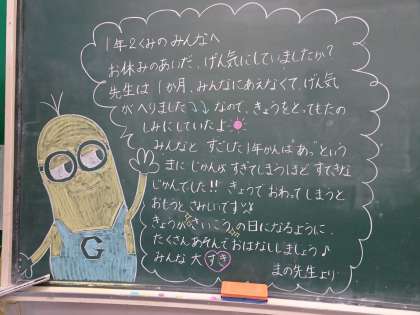 1年2くみの みんなへ
お休みのあいだ、げん気にしていましたか？
先生は1か月、みんなにあえなくて、げん気
がへりました↓↓ なので、きょうをとってもたの
しみにしていたよ
みんなと すごした1年かんは"あっ"という
まに じかんがすぎてしまうほど すてきな
じかんでした!! きょうで おわってしまうと
おもうと さみしいです
きょうが さいこう の日になるように、
たくさんあそんでおはなししましょう♪
みんな大すき
まの先生より
G